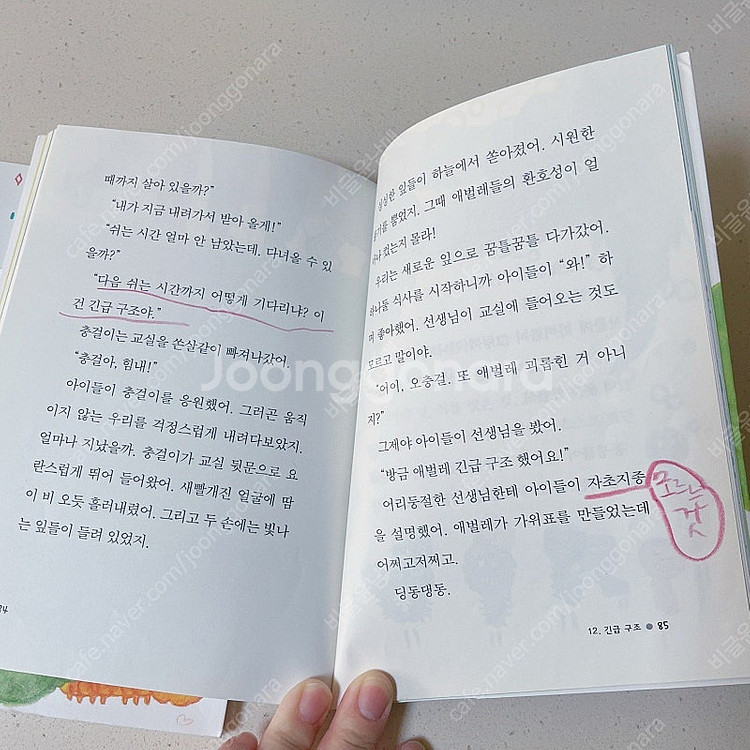 때까지 살아 있을까?"
"내가 지금 내려가서 받아 올게!"
"쉬는 시간 얼마 안 남았는데, 다녀올 수 있
을까?"
"다음 쉬는 시간까지 어떻게 기다리냐? 이
건 긴급 구조야."
충걸이는 교실을 쏜살같이 빠져나갔어.
"충걸아, 힘내!"
아이들이 충걸이를 응원했어. 그러곤 움직
이지 않는 우리를 걱정스럽게 내려다보았지.
얼마나 지났을까. 충걸이가 교실 뒷문으로 요
란스럽게 뛰어 들어왔어. 새빨개진 얼굴에 땀
이 비 오듯 흘러내렸어. 그리고 두 손에는 빛나
는 잎들이 들려 있었지.
싱싱한 잎들이 하늘에서 쏟아졌어. 시원한
뿜었지. 그때 애벌레들의 환호성이 얼
컸는지 몰라!
우리는 새로운 잎으로 꿈틀꿈틀 다가갔어.
하나둘 식사를 시작하니까 아이들이 "와!" 하
며 좋아했어. 선생님이 교실에 들어오는 것도
모르고 말이야.
"어이, 오충걸. 또 애벌레 괴롭힌 거 아니
지?"
그제야 아이들이 선생님을 봤어.
"방금 애벌레 긴급 구조 했어요!"
어리둥절한 선생님한테 아이들이 자초지종
을 설명했어. 애벌레가 가위표를 만들었는데
어쩌고저쩌고.
딩동댕동.
모르는
것
84
12. 긴급 구조 ● 85
Joonggonara
cafe.naver.com/joonggonara